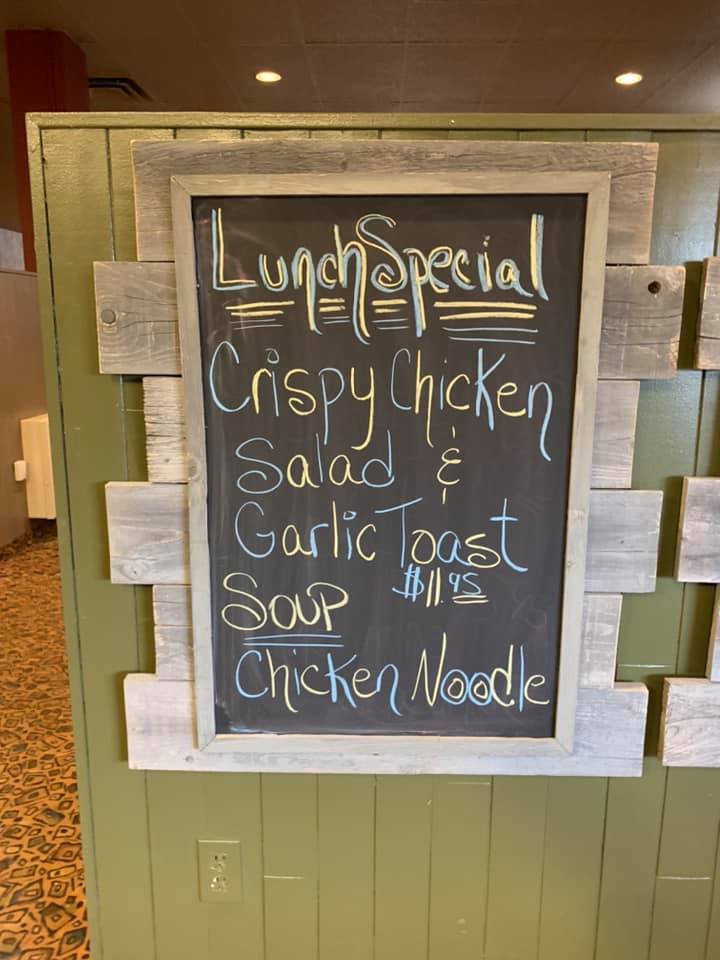 Lunch Special
Crispy Chicken
Salad &
Garlic Toast
$11.95
Soup
Chicken Noodle